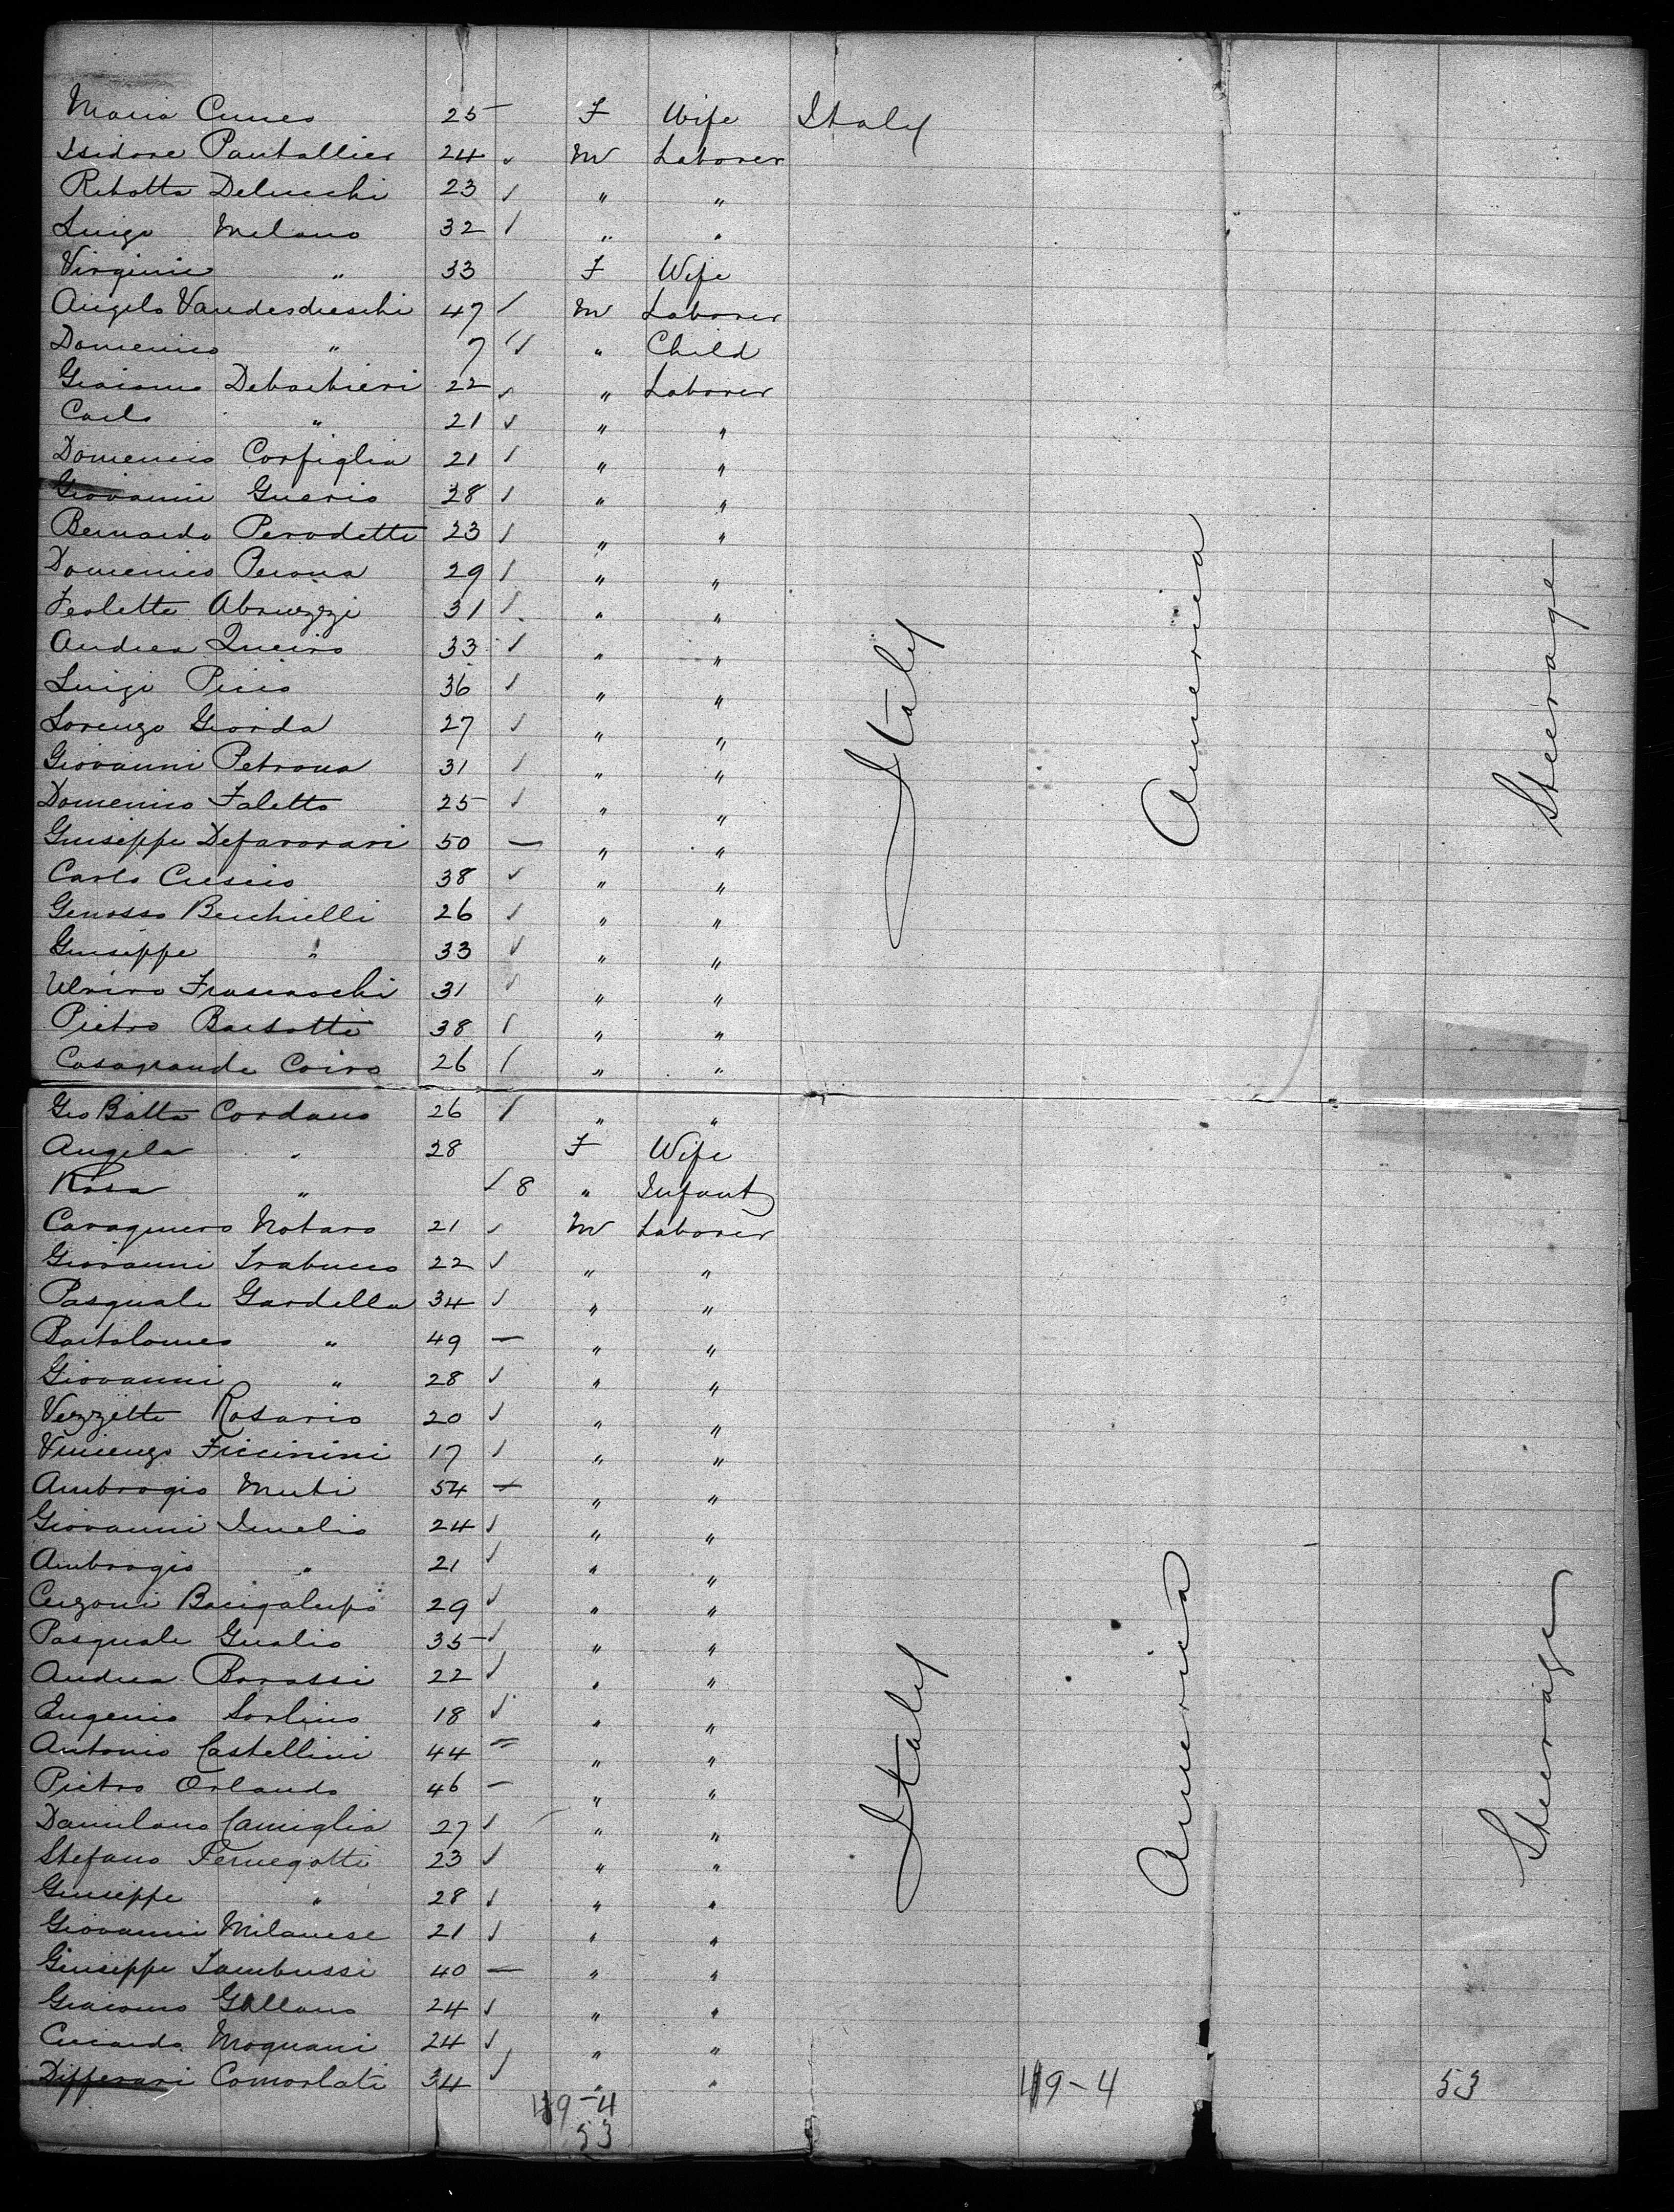 Maria Cuneo 25 F Wife Italy
Isidore Pautallier 24 M Laborer
Ribotta Delucchi 23 " "
Luigo Melano 32 " "
Virginia " 33 F Wife
Angelo Vandesdieschi 47 M Laborer
Domenico " 7 " Child
Giacomo Debarbieri 22 " Laborer
Carlo " 21 " "
Domenico Corfiglia 21 " "
Giovanni Guerio 28 " "
Bernardo Perodetti 23 " "
Domenico Perona 29 " "
Feoletto Abruzzi 31 " "
Andrea Queiro 33 " "
Luigi Picco 36 " "
Lorenzo Giorda 27 " "
Giovanni Petrona 31 " "
Domenico Faletto 25 " "
Giuseppe Defavorari 50 " "
Carlo Crescio 38 " "
Genosso Bechielli 26 " "
Giuseppe " 33 " "
Frascaschi 31 " "
Pietro Barsotti 38 " "
Casagrande Coiro 26 " "
Italy America Steerage
Gio Batta Cordano 26 " "
Angela " 28 F Wife
Rosa " 8 " Infant
Caragnero Notaro 21 M Laborer
Giovanni Trabucco 22 " "
Pasquale Gardella 34 " "
Bartolomeo " 49 " "
Giovanni " 28 " "
Vezzetti Rosario 20 " "
Vincenzo Ficcinini 17 " "
Ambrogio Muti 54 " "
Giovanni Imelio 24 " "
Ambrogio " 21 " "
Bacigalupo 29 " "
Pasquale Gualio 35 " "
Andrea Borassi 22 " "
Eugenio Sorlino 18 " "
Antonio Castellini 44 " "
Pietro Orlando 46 " "
Damilano Camiglia 27 " "
Stefano Pernegotti 23 " "
Giuseppe " 28 " "
Giovanni Milanese 21 " "
Giuseppe Tambussi 40 " "
Giacomo Gallano 24 " "
Moguani 24 " "
Differari Comorlati 34 " "
Italy America Steerage
49-4 49-4 53
53